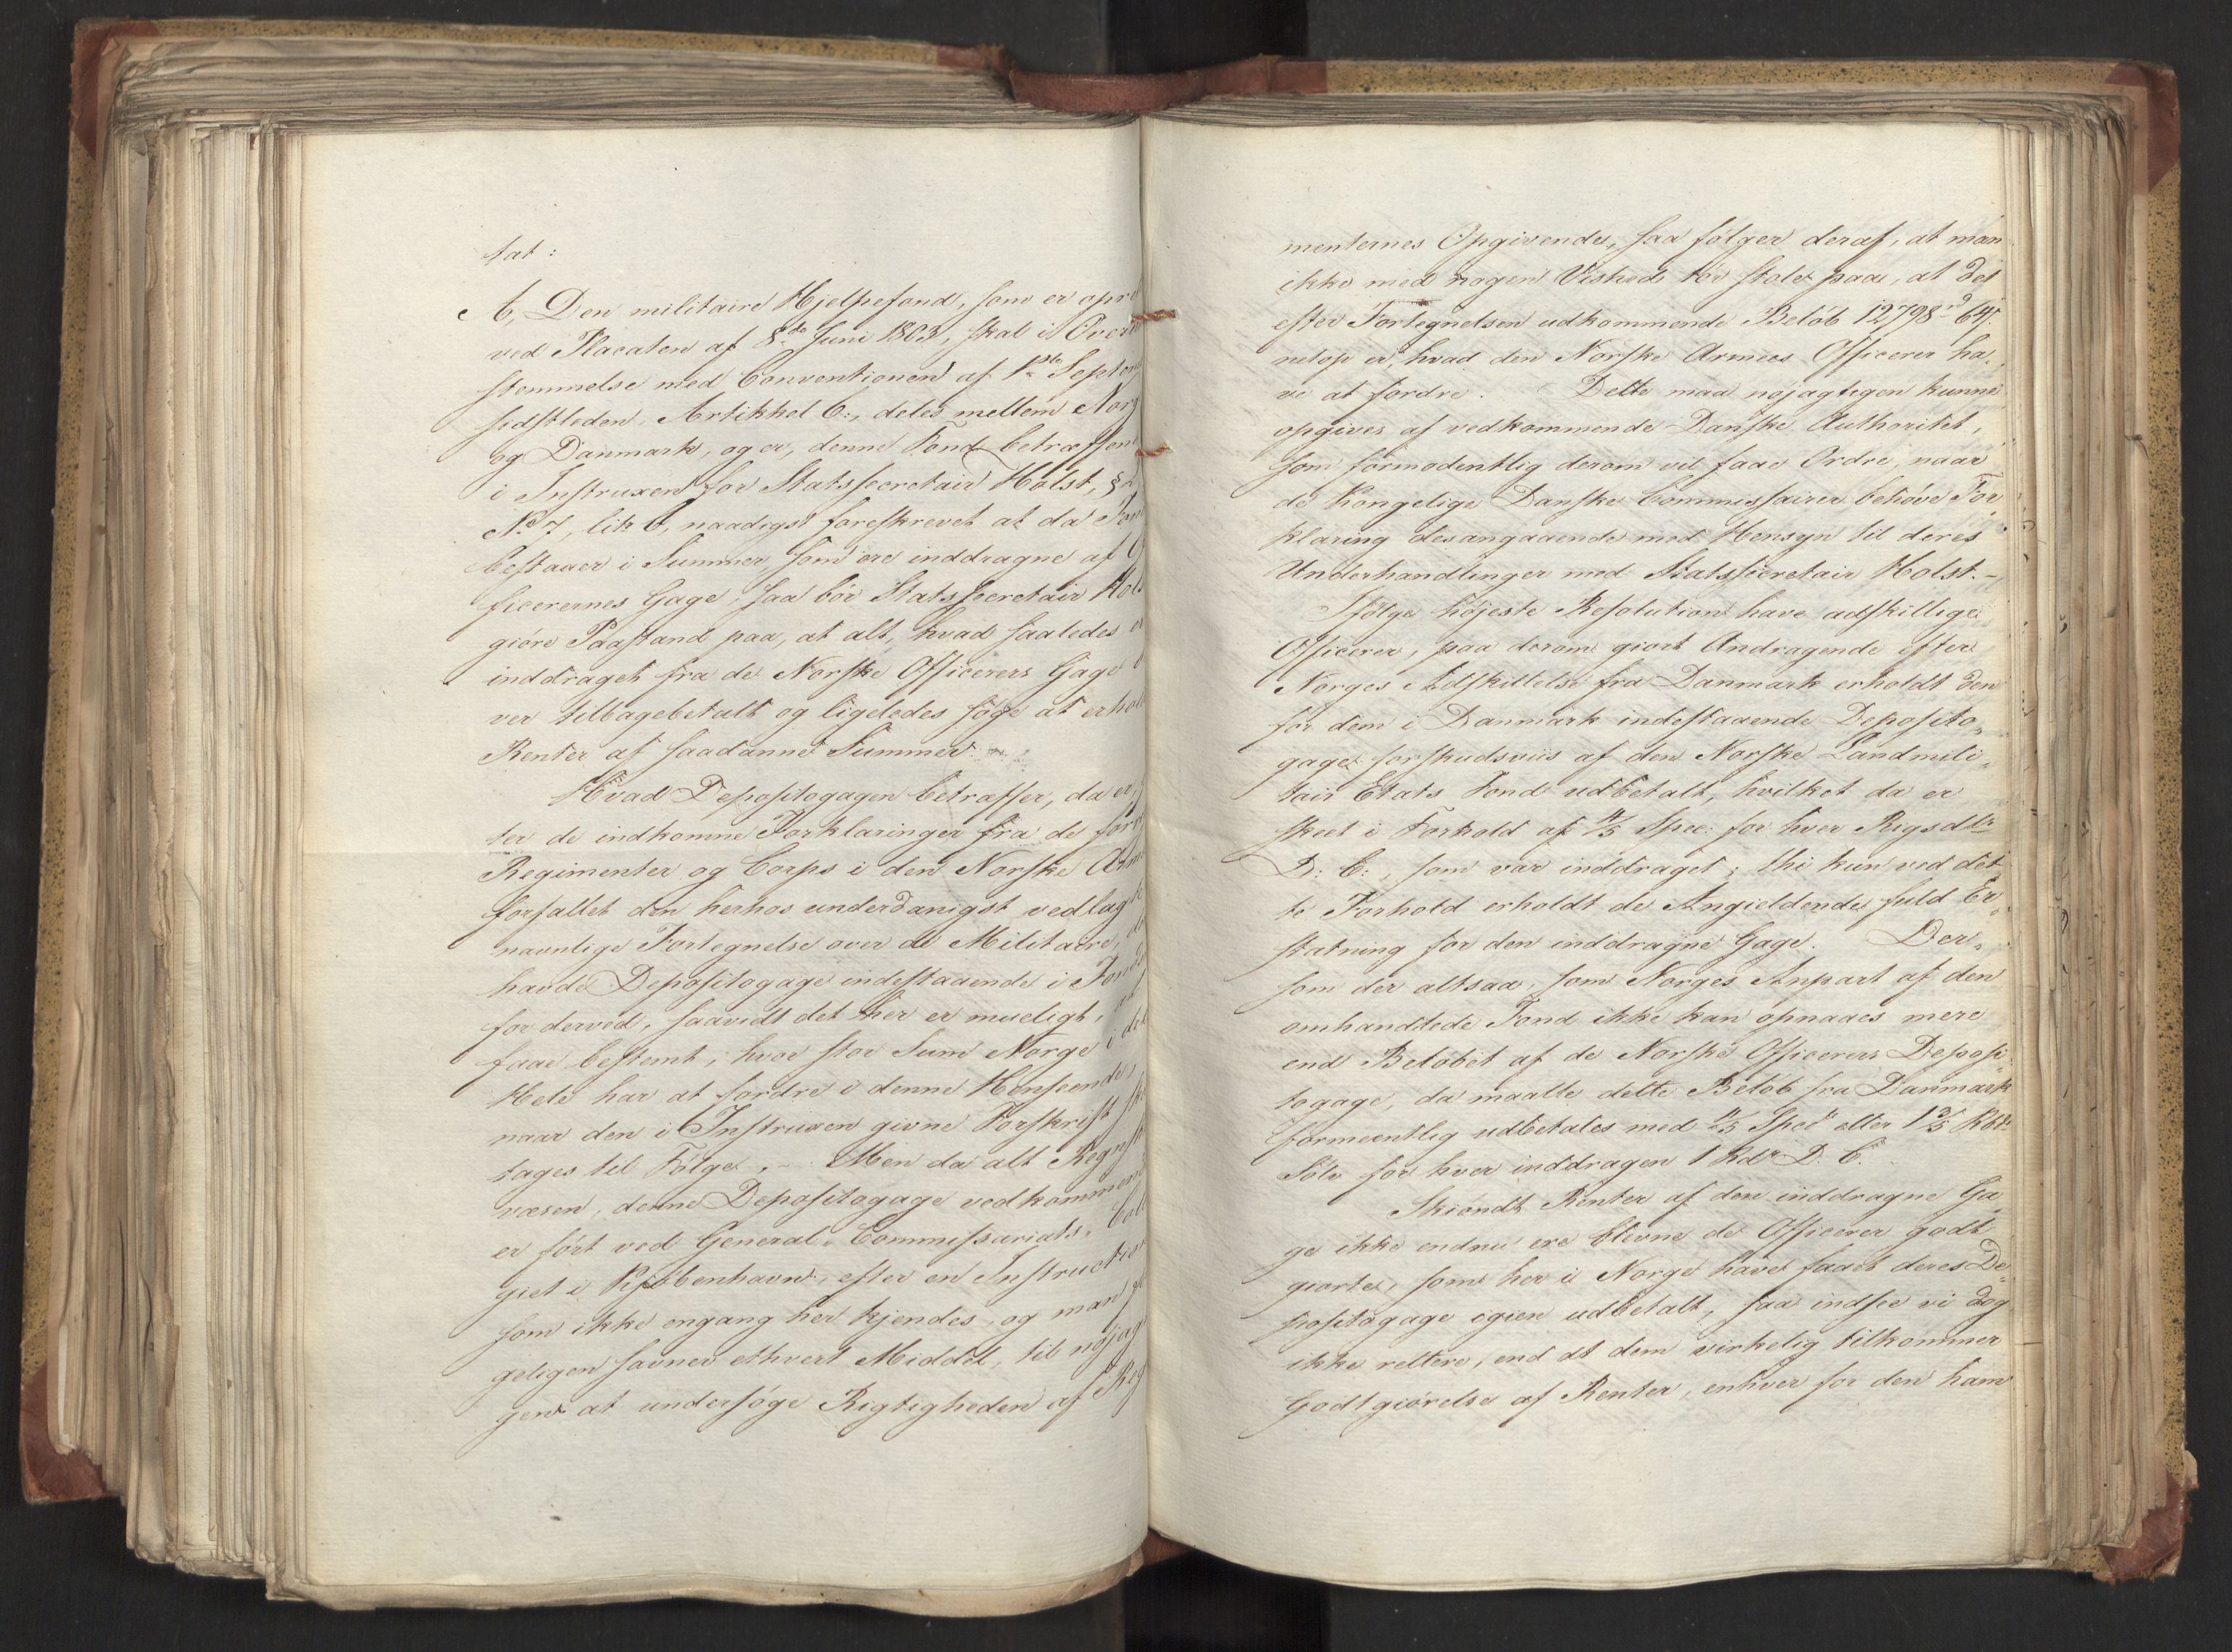 tat:
A, Den militaire Hjelpefond, som er opre
ved Placaten af 8de Juni 1803, skal i Over
stemmelse med Conventionen af 1ste Septem
sidstleden, Artikkel 6:, deles mellem Norg
og Danmark, og er, denne Fond betræffen
i Instruxen for Statssecretair Holst, §
No 7, lit b, naadigst foreskrevet at da Fon
bestaaer i Summer som ere inddragne af O
ficerernes Gage, saa bör Statssecretair Hols
giöre Paastand paa, at alt, hvad saaledes e
inddraget fra de Norske Officerers Gage
ver tilbagebetalt og ligeledes söge at erhol
Renter af saadanne Summer.
Hvad Depositogagen betræffer, da er,
ter de indkomne Forklaringer fra de
Regimenter og Corps i den Norske Arm
forfattet den herhos underdanigst vedlag
navnlige Fortegnelse over de Militaire, d
havde Depositogage indestaaende i Fond
for derved, saavidt det her er mueligt,
faae bestemt, hvor stor Sum Norge i det
Hele har at fordre i denne Henseende,
naar den i Instruxen givne Forskrift sk
tages til Fölge. – Men da alt Regnsk
væsen, denne Depositogage vedkommen
er fört ved General-Commissariats-Col
giet i Kjöbenhavn, efter en Instruction
som ikke engang her kjendes, og man
geligen savner ethvert Middel, til nöjag
gen at undersöge Rigtigheden af Reg
menternes Opgivende, saa fölger deraf, at man
ikke med nogen Vished tör stole paa, at det
efter Fortegnelsen udkommende Belöb 12798rd 64s
netop er, hvad den Norske Armees Officerer ha,
ve at fordre. Dette maa nöjagtigen kunne
opgives af vedkommende Danske Authoritet,
som formodentlig derom vil faae Ordre, naar
de Kongelige Danske Commissairer behöve For,
klaring desangaaende med Hensyn til deres
Underhandlinger med Statssecretair Holst. –
Ifölge höjeste Resolution have adskillige
Officerer, paa derom giort Andragende efter
Norges Adskillelse fra Danmark erholdt den
for dem i Danmark indestaaende Deposito,
gage forskudsviis af den Norske Landmili,
tair Etats Fond udbetalt, hvilket da er
skeet i Forhold af 4/5 Spec: for hver Rigsdlr
D: C:, som var inddraget; thi kun ved det,
te Forhold erholdt de Angieldende fuld Er,
statning for den inddragne Gage. Der,
som der altsaa, som Norges Anpart af den
omhandlede Fond ikke kan opnaaes mere
end Belöbet af de Norske Officerers Deposi,
togage, da maatte dette Belöb fra Danmark
formeentlig udbetales med 4/5 Spec eller 1 3/5 Rbd
Sölv for hver inddragen 1 Rdr D. C.
Skiöndt Renter af den inddragne Ga,
ge ikke endnu ere blevne de Officerer godt,
giorte, som her i Norge have faaet deres De,
positogage igien udbetalt, saa indsee vi dog
ikke rettere, end at dem virkelig tilkommer
Godtgiörelse af Renter, enhver for den ham